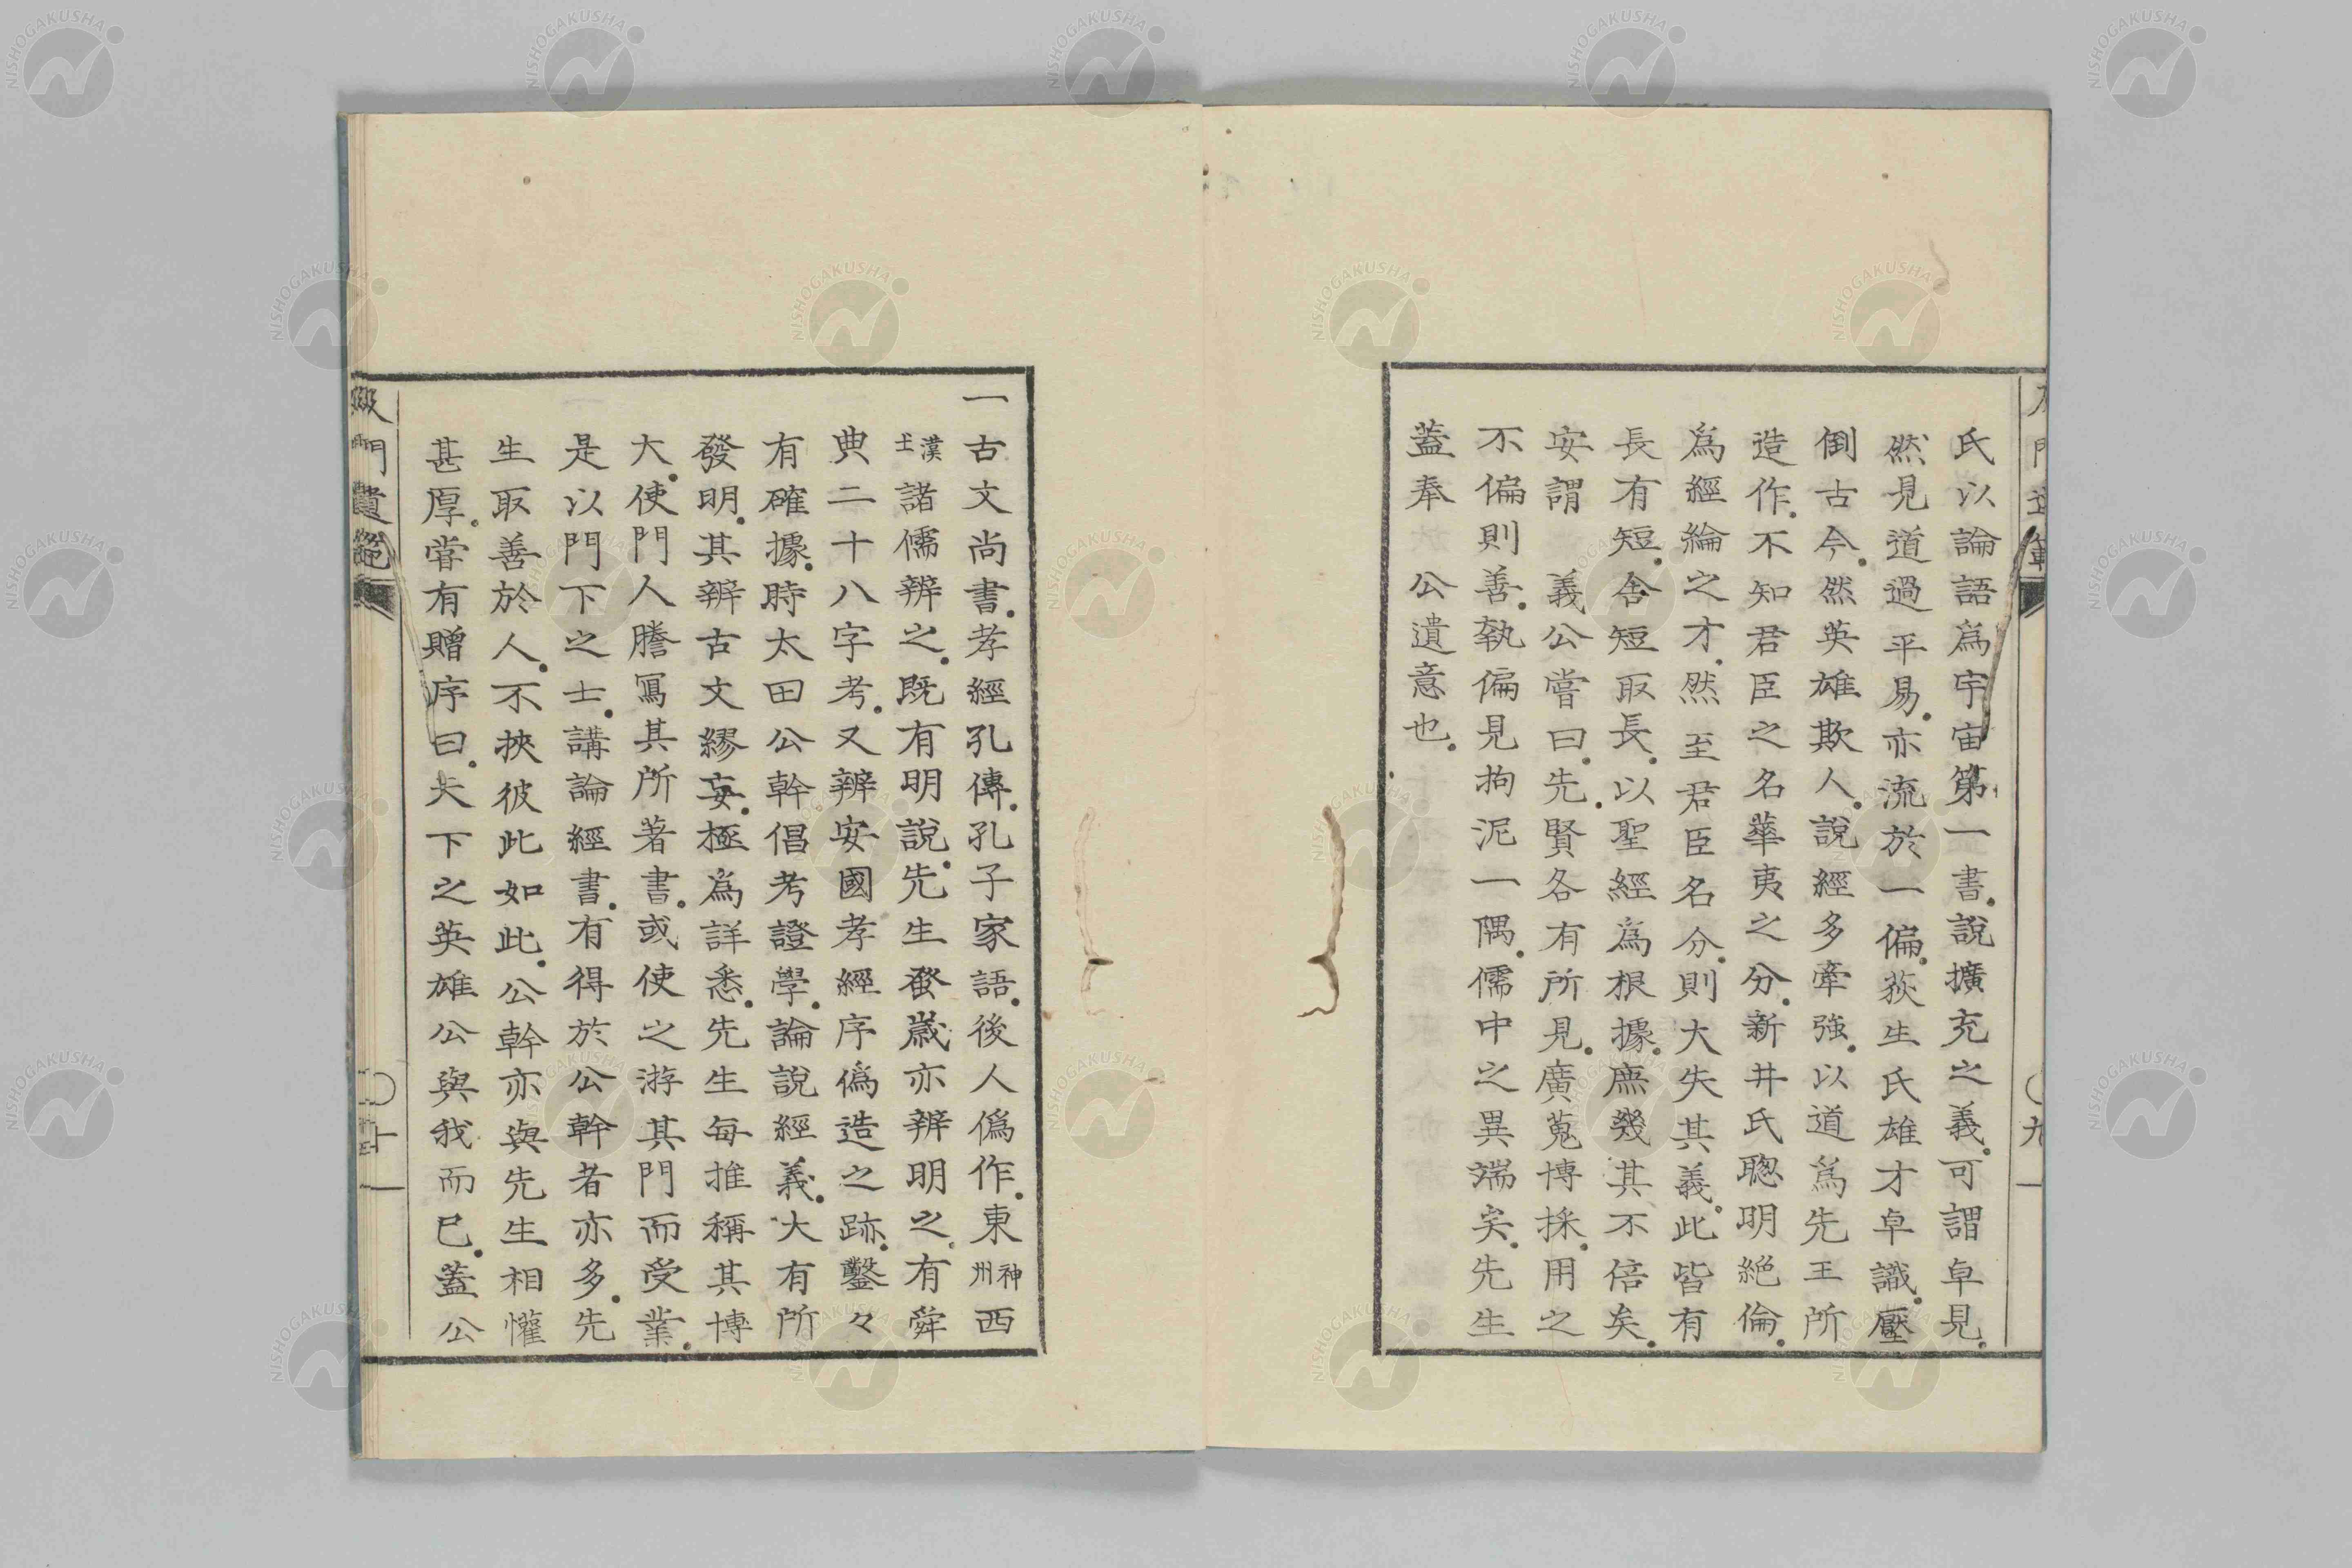 氏以論語爲宇宙第一書説擴充之義可謂卓見
然見道過平易亦流於一偏荻生氏雄才卓識壓
倒古今然英雄欺人説經多牽強以道爲先王所
造作不知君臣之名華夷之分新井氏聰明絶倫
爲經綸之才然至君臣名分則大失其義此皆有
長有短舍短取長以聖經爲根據庶幾其不倍矣
安謂　義公嘗曰先賢各有所見廣蒐博採用之
不偏則善執偏見拘泥一隅儒中之異端矣先生
蓋奉　公遺意也
一古文尚書孝經孔傳孔子家語後人僞作東神州西
漢土諸儒辨之既有明説先生蚤歳亦辨明之有舜
典二十八字考又辨安國孝經序僞造之跡鑿々
有確據時太田公幹倡考證學論説經義大有所
發明其辨古文繆妄極爲詳悉先生毎推稱其博
大使門人謄寫其所著書或使之游其門而受業
是以門下之士講論經書有得於公幹者亦多先
生取善於人不挾彼此如此公幹亦與先生相懽
甚厚甞有贈序曰天下之英雄公與我而已蓋公
NISHOGAKUSHA